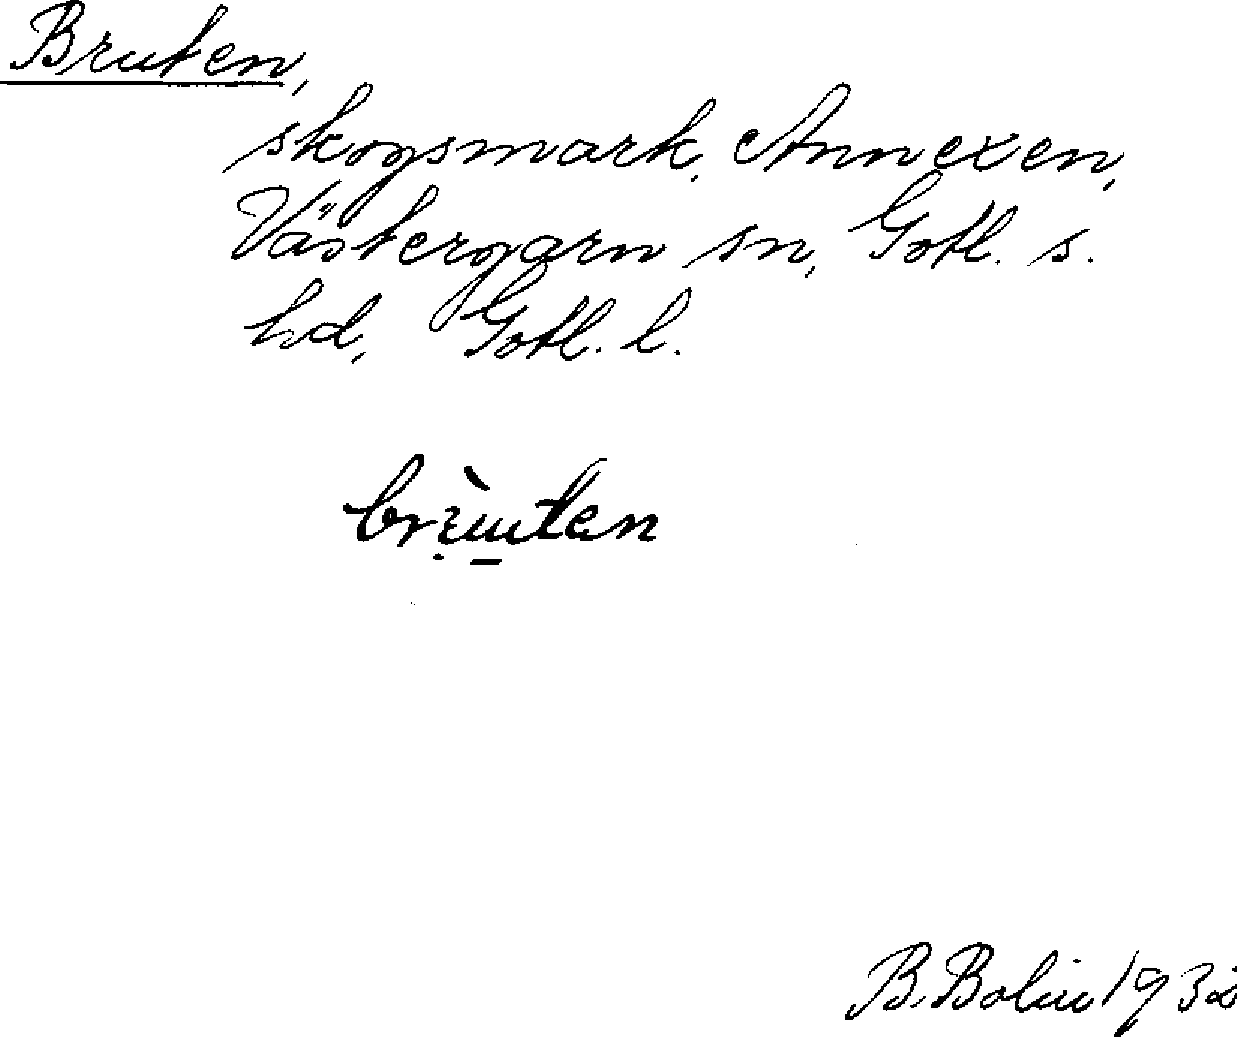 Bruten,
skogsmark, Annexen,
Västergarn sn, Gotl. s.
hd, Gotl. l.
B. Bolin 1932